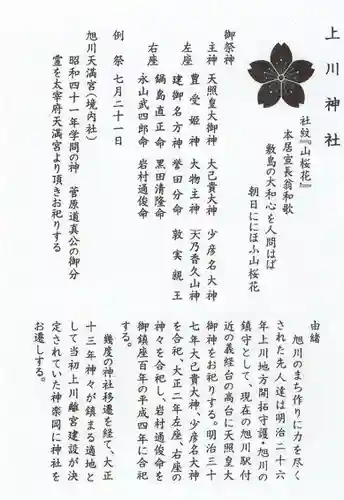 上川神社
社紋『山桜花』
本居宣長翁和歌
敷島の大和心を人問はば
朝日ににほふ山桜花
御祭神
主神 天照皇大御神 大己貴大神 少彦名大神
豊受姫神 大物主神 天乃香久山神
左座 建御名方神 誉田分命 敦実親王
右座 鍋島直正命 黒田清隆命
永山武四郎命 岩村通俊命
例祭 七月二十一日
旭川天満宮(境内社)
昭和四十一年学問の神 菅原道真公の御分
霊を太宰府天満宮より頂きお祀りする
由緒
旭川のまち作りに力を尽く
された先人達は明治二十六
年上川地方開拓守護・旭川の
鎮守として、現在の旭川駅付
近の義経台の高台に天照皇大
御神をお祀りする。明治三十
七年大己貴大神、少彦名大神
を合祀、大正二年左座、右座の
神々を合祀し、岩村通俊命を
御鎮座百年の平成四年に合祀
する。
幾度の神社移遷を経て、大正
十三年神々が鎮まる適地と
して当初上川離宮建設が決
定されていた神楽岡に神社を
お遷しする。